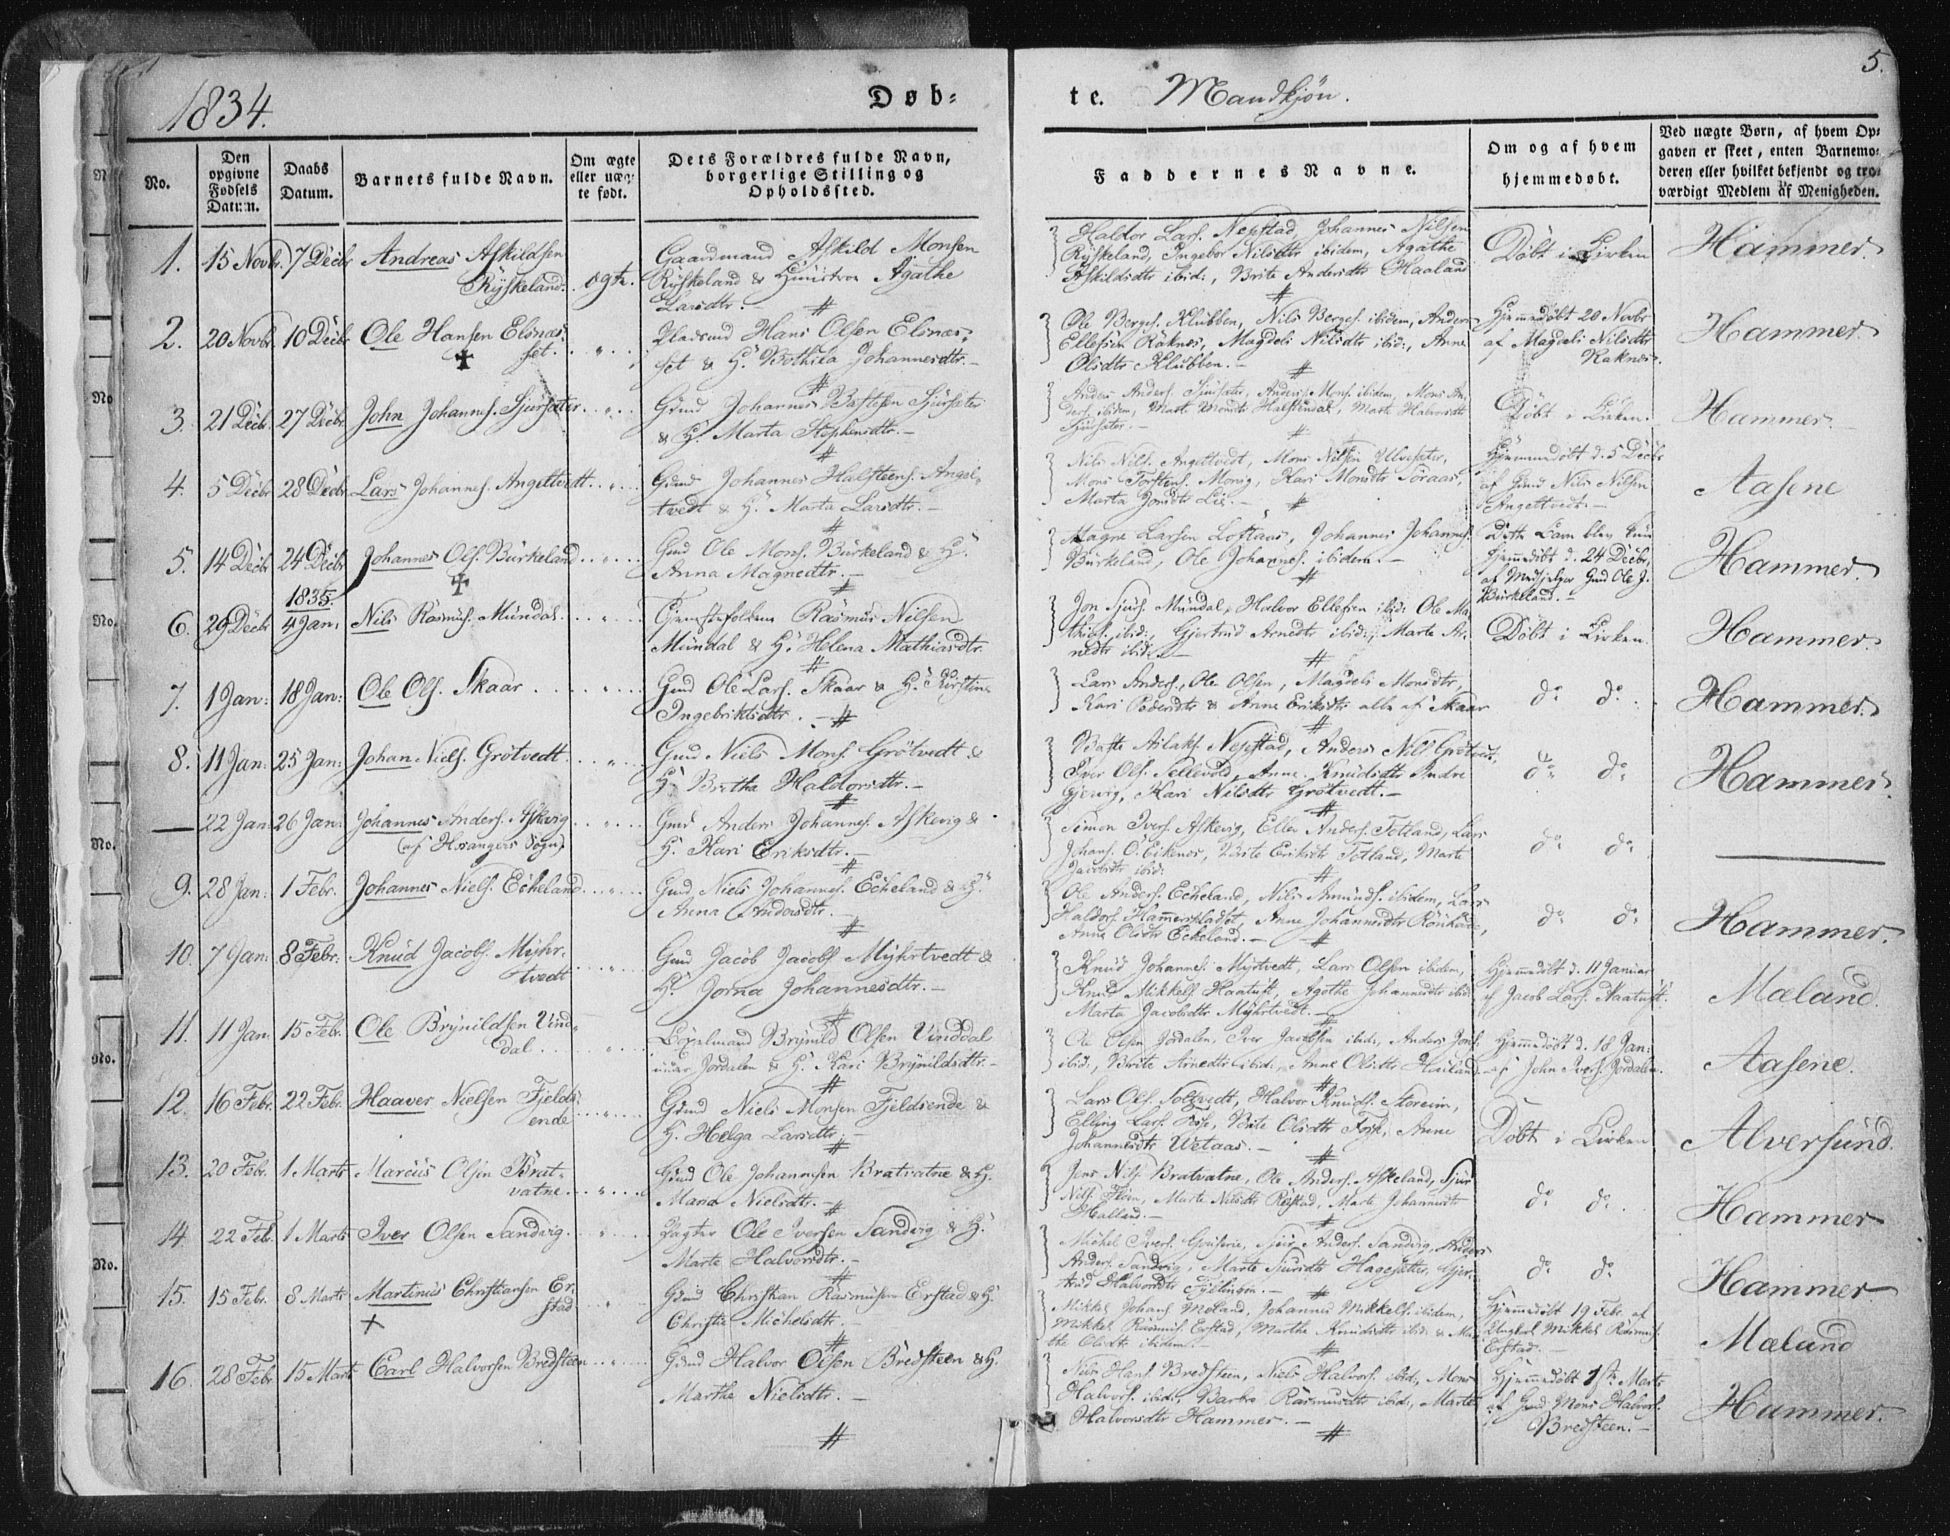 1834.
Døb=
te. Mandkjøn.
5.
No.
Den opgivne Fødsels Datum.
Daabs Datum.
Barnets fulde Navn.
Om ægte eller uægte født.
Dets Forældres fulde Navn, borgerlige Stilling og Opholdssted.
Faddernes Navne.
Om og af hvem hjemmedøbt.
Ved uægte Børn, af hvem Opgaven er skeet, enten Barnemoderen eller hvilket bekjendt og troværdigt Medlem af Menigheden.
1. 15 Novbr. 7 Decbr Andreas Askildsen
Ryskeland. ægte.
Gaardmand Askild Monsen
Ryskeland & Huustroe Agathe
Larsdtr.
Haldor Lars. Nepstad, Johannes Nilsen
Ryskeland, Ingebor Nilsdtr ibidem, Agathe
Askildsdtr ibid:, Brite Andersdtr Haaland
Døbt i Kirken
Hammer.
2. 20 Novbr 10 Decbr Ole Hansen Elsnes-
set.
Hans Olsen Elsnes-
set & H. Johannesdtr.
Ole Berges. Klubben, Nils Berges. ibidem, Anders
Ellefsen Raknes, Magdeli Nilsdtr ibid:, Anne
Olsdtr Klubben.
Hjemmedøbt 20 Novbr
af Magdeli Nilsdtr
Raknes.
Hammer
3. 21 Decbr. 27 Decbr. John Johannes. Sjursæter
Gmd Johannes Bastesen Sjursæter
& H. Marta Stephensdtr.
Døbt i Kirken.
Hammer.
4. 5 Decbr 28 Decbr. Lars Johannes. Angeltvedt
Gmd Johannes Halsteens. Angel-
tvedt & H. Marta Larsdtr.
Nils Nils. Angeltvedt, Mons Nilsen Ulvesæter,
Mons Torstens. Monig, Kari Monsdtr
Marta Jonsdtr Lie.
Hjemmedøbt d. 5 Decbr
af Gmd Nils Nilsen
Angeltvedt.
Aasene
5. 14 Decbr 24 Decbr Johannes Ols. Burkeland
Gmd Ole Mons. Burkeland & H.
Anna Magnedtr.
Magne Larsen Loftaas, Johannes Johannes.
Burkeland, Ole Johannes. ibidem.
Dette Barn blev kun
hjemmedøbt d. 24 Decbr,
af Gmd Ole J.
Burkeland.
Hammer.
1835.
6. 29 Decbr 4 Jan: Nils Rasmus. Mundal.
Rasmus Nilsen
Mundal & H. Helena Mathiasdtr.
Jon Sjurs. Mundal, Halvor Ellefsen ibid: Ole Ma-
thias. ibid:, Gjertrud Arnedtr ibid:, Marte Ar-
nedtr ibid:
Døbt i Kirken
Hammer.
7. 1 Jan: 18 Jan: Ole Ols. Skaar
Gmd Ole Lars. Skaar & H. Kirstine
Ingebriktsdtr.
Lars Anders., Ole Olsen, Magdeli Monsdtr,
Kari Pedersdtr & Anne Eriksdtr alle af Skaar
do do.
Hammer.
8. 11 Jan: 25 Jan: Johan Niels. Grötvedt.
Gmd Niels Mons. Grötvedt &
H. Haldorsdtr.
Baste Aslaks. Nepstad, Anders Nils. Grötvedt,
Iver Ols. Sellevold, Anne Knudsdtr Indre
Gjervig, Kari Nilsdtr Grötvedt.
do do
Hammer.
— 22 Jan: 26 Jan: Johannes Anders. Askevig
(af Hosangers Sogn)
Gmd Anders Johannes. Askevig &
H. Kari Eriksdtr.
Simon Ivers. Askevig, Ellen Anders. Totland, Lars
Johans. Ö. Eiknes, Brite Eriksdtr Totland, Marte
Jacobsdtr ibid:
do do
9. 28 Jan: 1 Febr. Johannes Niels. Echeland
Gmd Niels Johannes. Echeland & H.
Anna Andersdtr.
Ole Anders. Echeland, Nils Amunds. ibidem, Lars
Haldors. Hammerspladset, Anne Johannesdtr
Anne Olsdtr Eckeland.
do do
Hammer.
10. 7 Jan: 8 Febr. Knud Jacobs. Myhr-
tvedt
Gmd Jacob Jacobs. Myhrtvedt &
H. Johannesdtr.
Knud Johannes. Myrtvedt, Lars Olsen ibidem,
Knud Mikkels. Haatuft, Agathe Johannesdtr ibid:
Marta Jacobsdtr Myhrtvedt.
Hjemmedøbt d. 11 Januar
af Jacob Lars. Haatuft.
Mæland.
11. 11 Jan: 15 Febr. Ole Brynildsen Vind-
dal.
Brynild Olsen Vinddal
under Jordalen & H. Kari Brynildsdtr.
Ole Olsen Jordalen, Iver Jacobsen ibid:, Anders Jons.
ibid:, Brite Arnedtr ibid:, Anne Olsdtr
Hjemmedøbt d. 18 Jan:
af John Ivers. Jordalen.
Aasene.
12. 16 Febr. 22 Febr. Haaver Nielsen Fjelds-
ende
Gmd Niels Monsen Fjeldsende &
H. Helga Larsdtr.
Lars Ols. Halvor Knuds. Storeim,
Elling Lars. Brite Olsdtr Anne
Johannesdtr Wetaas.
Døbt i Kirken
Alversund.
13. 20 Febr. 1 Marts Marcus Olsen Brat-
vatne
Gmd Ole Johannesen Bratvatne & H.
Maria Nielsdtr.
Jens Nils. Bratvatne, Ole Anders. Askeland, Sjur
Nils. Marte Nilsdtr Marte Johannesdtr
do do.
Hammer
14. 22 Feb. 1 Marts Iver Olsen Sandvig.
Ole Iversen Sandvig & H.
Marte Halvorsdtr.
Michel Ivers. Sjur Anders. Sandvig, Anders
Anders. Sandvig, Marte Sjursdtr Hagesæter, Gjer-
trud Halvorsdtr
do do
Hammer
15. 15 Febr. 8 Marts Martinus Christiansen Er-
stad
Gmd Christian Rasmussen Erstad & H.
Christie Michelsdtr.
Mikkel Johans. Mæland, Johannes Mikkels. ibidem,
Mikkel Rasmus. Erstad, Marthe Knudsdtr ibid: & Mar-
the Olsdtr ibidem.
Hjemmedøbt 19 Febr. af
Ungkarl Mikkel Rasmus.
Erstad.
Mæland
16. 28 Febr 15 Marts Carl Halvorsen Bredsteen
Gmd Halvor Olsen Bredsteen & H.
Marthe Nielsdtr.
Hans. Bredsteen, Niels Halvors. ibid:, Mons
Halvors. ibid:, Barbro Rasmusdtr ibid:, Marte
Halvorsdtr Hammer.
Hjemmedøbt 1ste Marts
af Gmd Mons Halvors.
Bredsteen.
Hammer.